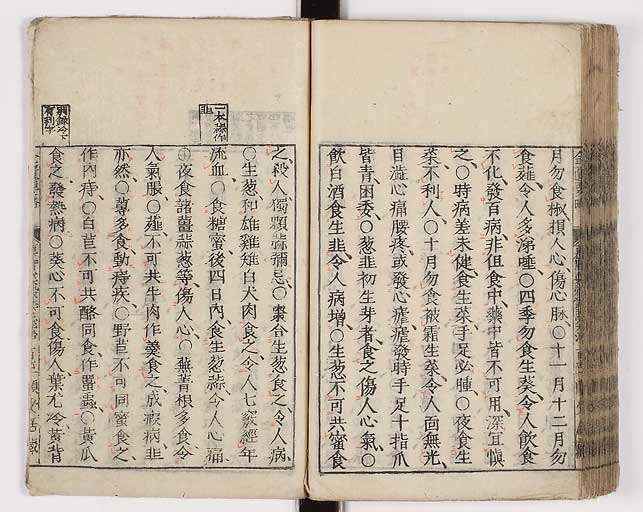 月勿食椒損人心傷心脉○十一月十二月勿
食薤令人多涕唾○四季勿食生葵令人飲食
不化發百病非但食中藥中皆不可用深宜慎
之○時病差未健食生菜手足必腫○夜食生
菜不利人○十月勿食被霜生菜令人面無光
目澁心痛腰疼或發心瘧瘧發時手足十指爪
皆青困委○葱韭初生芽者食之傷人心氣○
飲白酒食生韭令人病增○生葱不可共蜜食
之殺人獨顆蒜彌忌○棗合生葱食之令人病
○生葱和雄雞雉白犬肉食之令人七竅經年
流血○食糖蜜後四日內食生葱蒜令人心痛
○夜食諸薑蒜葱等傷人心○蕪菁根多食令
人氣脹○薤不可共牛肉作羹食之成瘕病韭
亦然○蓴多食動痔疾○野苣不可同蜜食之
作內痔○白苣不可共酪同食作䘌蟲○黃瓜
食之發熱病○葵心不可食傷人葉尤冷黃背
一本蒜作
韭
有利字